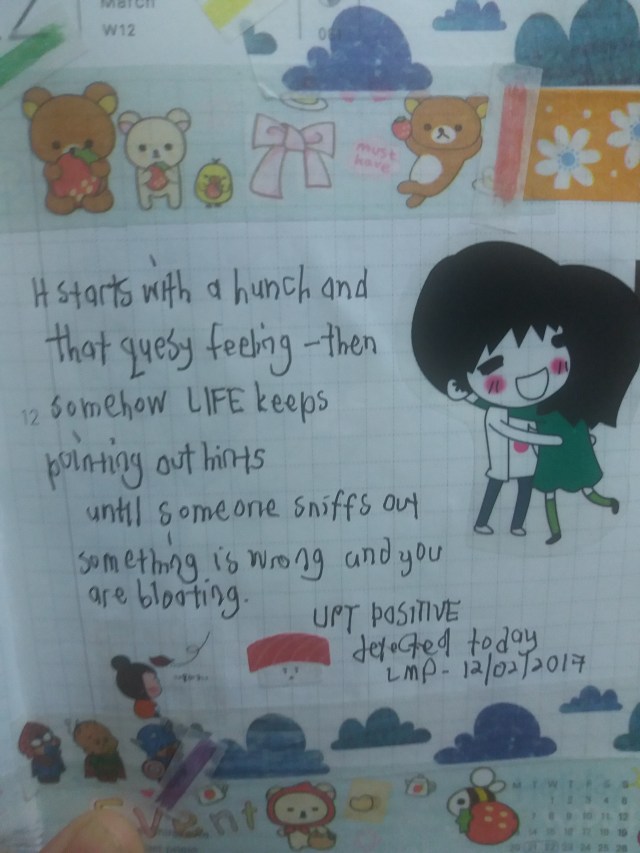 March
W12
must
have
It starts with a hunch and
that quesy feeling - then
12 somehow LIFE keeps
pointing out hints
until someone sniffs out
something is wrong and you
are bloating.
UPT POSITIVE
detected today
LMP - 12/02/2017
Event